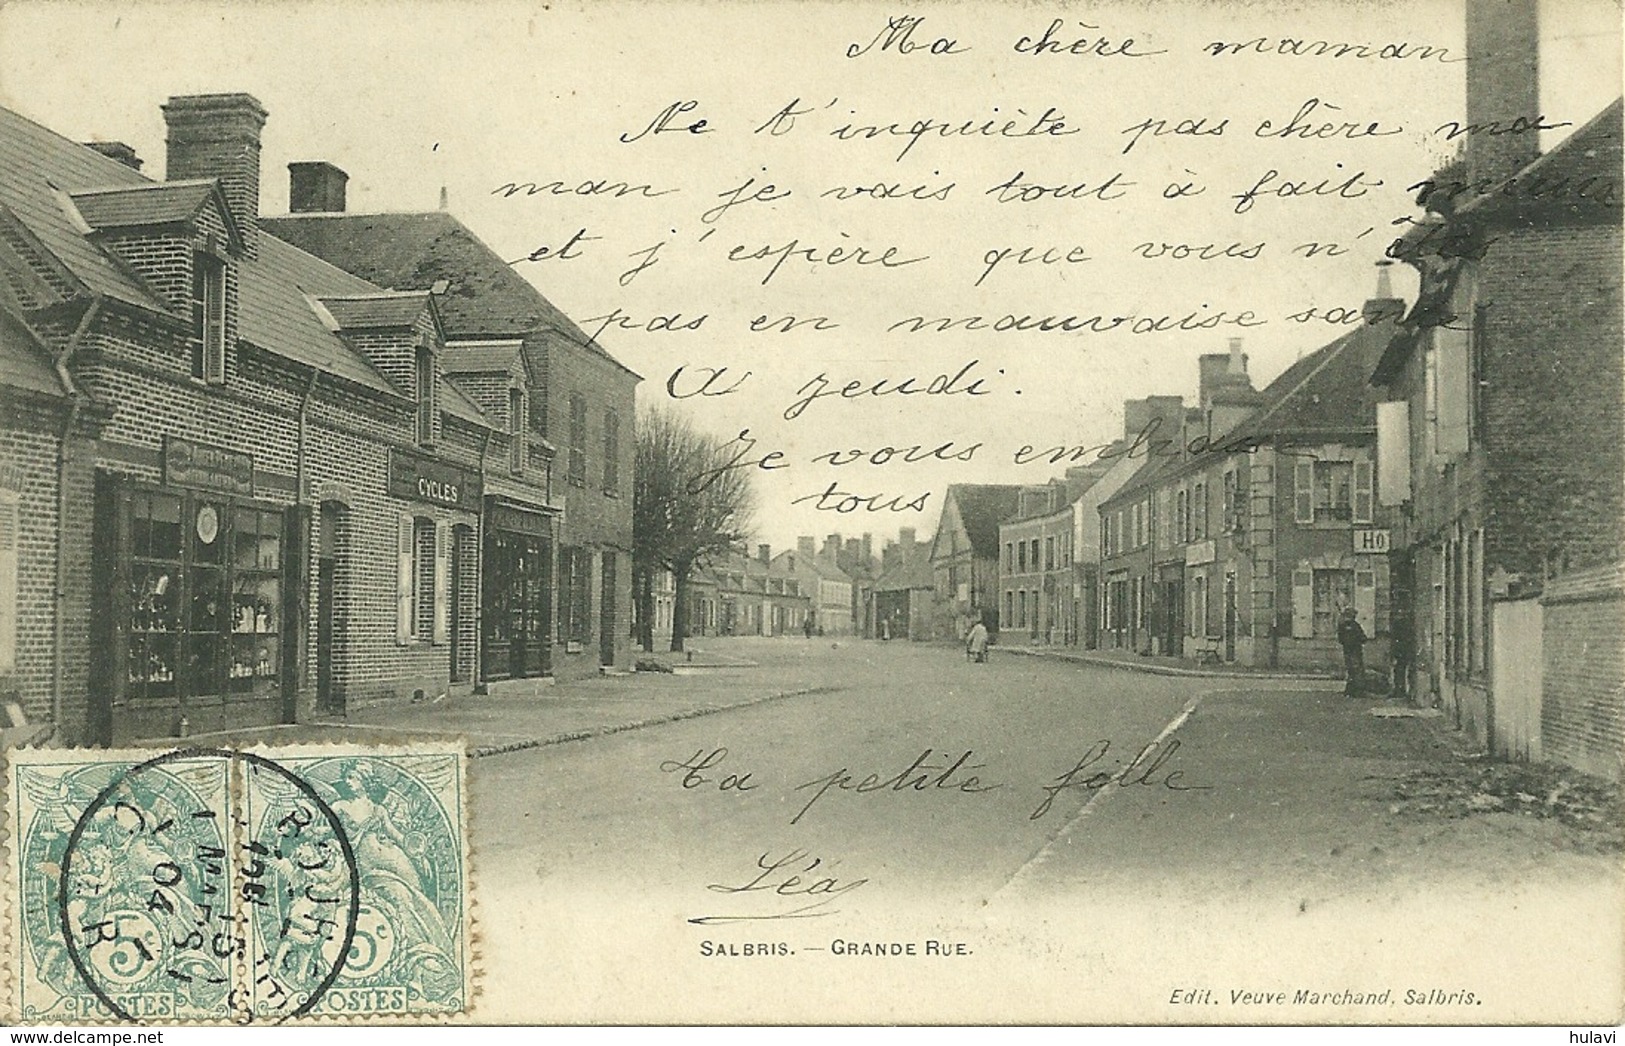 Ma chère maman
Ne t'inquiète pas chère ma
man je vais tout à fait mieux
et j'espère que vous n'êtes
pas en mauvaise santé
A jeudi.
Je vous embrasse
tous
CYCLES
HO
Ta petite fille
Léa
5c
5c
POSTES
POSTES
04
CHER
SALBRIS. — GRANDE RUE.
Edit. Veuve Marchand, Salbris.
hulavi